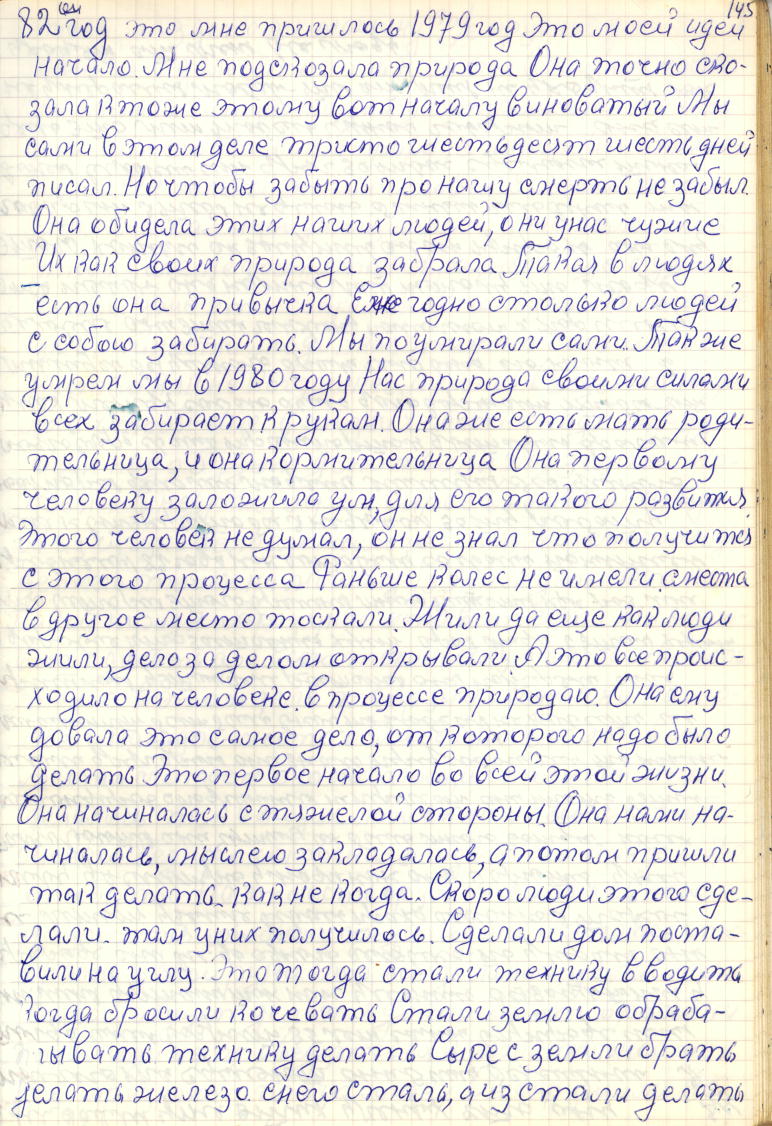 145
82ой год это мне пришлось 1979 год Это моей идеи
начало. Мне подсказала природа Она точно ска-
зала кто же этому вот началу виноватый Мы
сами в этом деле тристо шестьдесят шесть дней
писал. Но чтобы забыть про нашу смерть не забыл.
Она обидела этих наших людей, они унас чужие
Их как своих природа забрала Такая в людях
есть она привычка Ежегодно столько людей
с собою забирать. Мы поумирали сами. Так же
умрем мы в 1980 году Нас природа своими силами
всех забирает к рукам. Она же есть мать роди-
тельница, и она кормительница Она первому
человеку заложила ум, для его такого развития.
Этого человек не думал, он не знал что получится
с этого процесса Раньше колес не имели с места
в другое место тоскали. Жили да еще как люди
жили, дело за делом открывали. А это все проис-
ходило на человеке. в процессе природаю. Она ему
довала это самое дело, от которого надо было
делать Это первое начало во всей этой жизни.
Она начиналась с тяжелой стороны. Она нами на-
чиналась, мыслею закладалась, а потом пришли
так делать. как не когда. Скоро люди этого сде-
лали. там у них получилось. Сделали дом поста-
вили на углу. Это тогда стали технику вводить
когда бросили кочевать Стали землю обраба-
тывать технику делать Сырес земли брать
делать железо снего сталь, а из стали делать